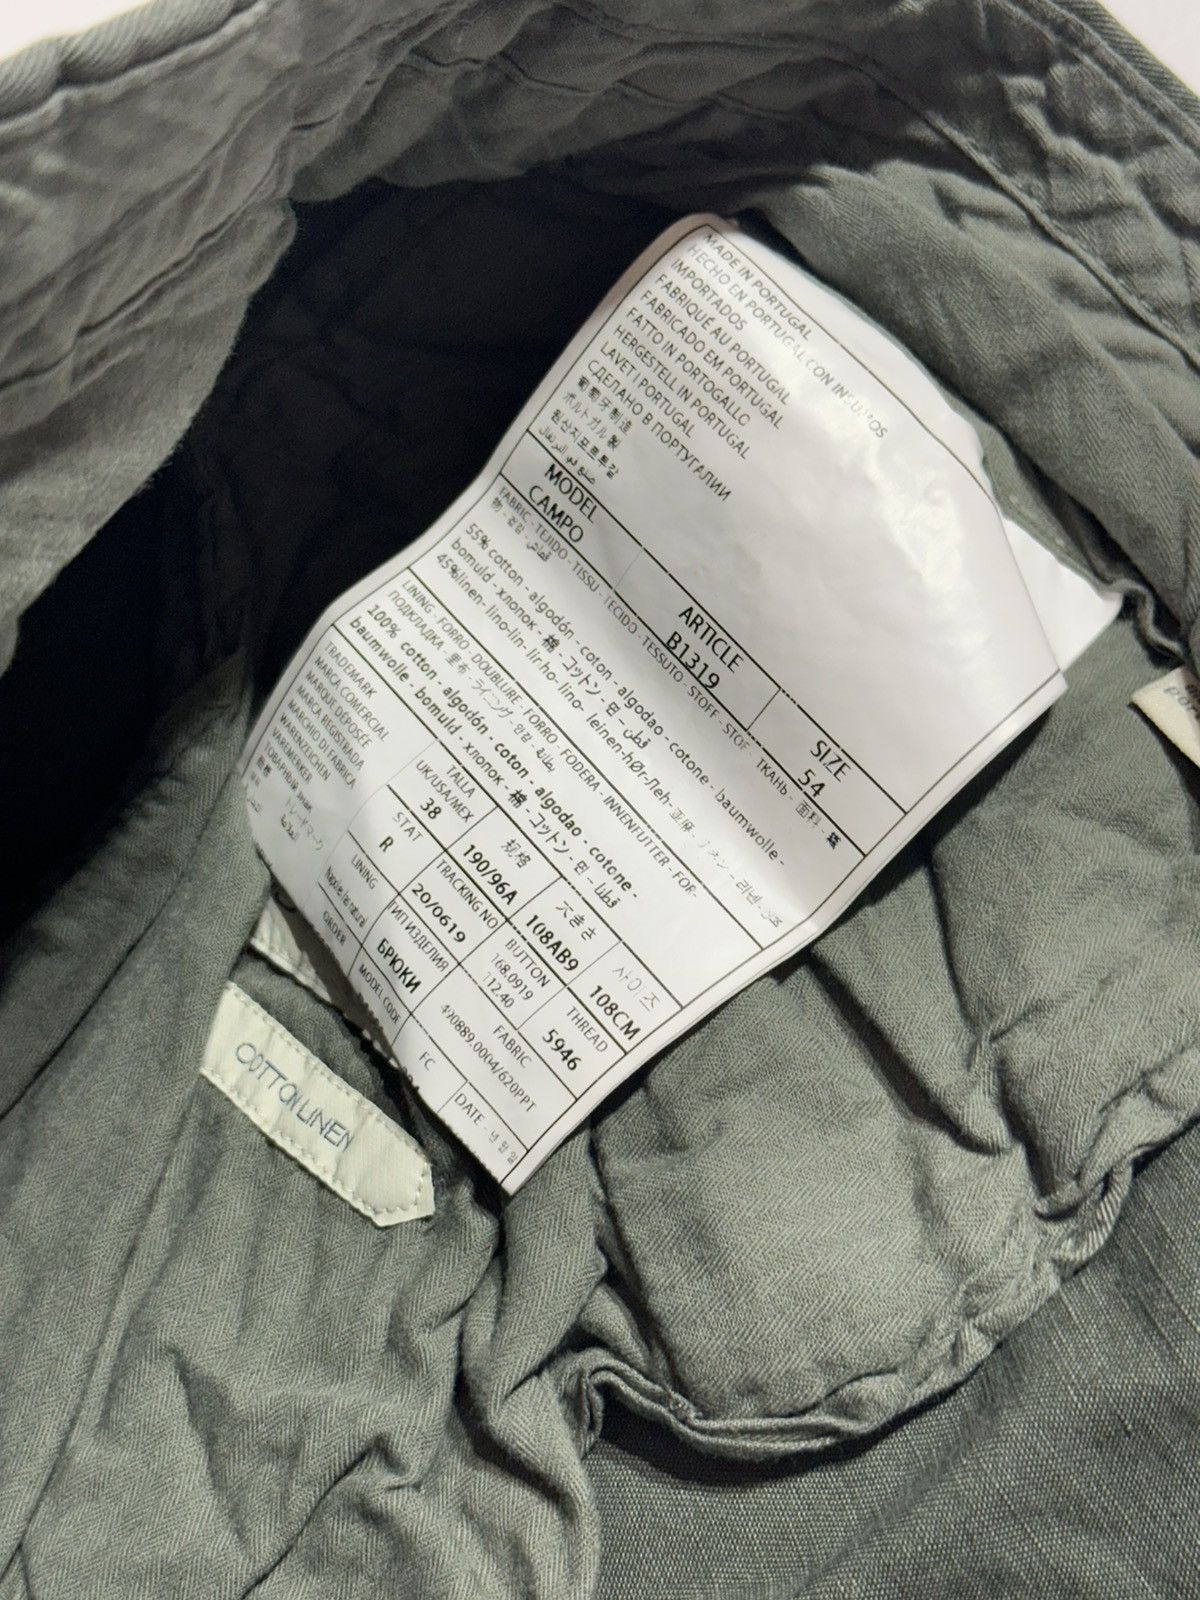 MADE IN PORTUGAL
HECHO EN PORTUGAL CON INSUMOS
IMPORTADOS
FABRIQUÉ AU PORTUGAL
FABRICADO EM PORTUGAL
FATTO IN PORTOGALLO
HERGESTELL IN PORTUGAL
LAVET I PORTUGAL
СДЕЛАНО В ПОРТУГАЛИИ
葡萄牙制造
ポルトガル製
원산지포르투갈
صنع في البرتغال
MODEL ARTICLE SIZE
CAMPO B1319 54
FABRIC - TEJIDO - TISSU - TECIDO - TESSUTO - STOFF - STOF - ТКАНЬ - 面料 -
物 - 겉감 - قماش
55% cotton - algodón - coton - algodao - cotone - baumwolle -
bomuld - хлопок - 棉 - コットン - 면 - قطن
45%linen- lino-lin-lir ho-lino- leinen-hØr-Лен- 亚麻 - リネン - 리넨 -
LINING - FORRO - DOUBLURE - FORRO - FODERA - INNENFUTTER - FOR-
ПОДКЛАДКА - 里布 - ライニング - 안감 - بطانة
100% cotton - algodón - coton - algodao - cotone -
baumwolle - bomuld - хлопок - 棉 - コットン - 면 - قطن
TRADEMARK
MARCA COMERCIAL
MARQUE DÉPOSÉE
MARCA REGISTRADA
MARCHIO DI FABRICA
WARENZEICHEN
VAREMERKER
ТОВАРНЫЙ ЗНАК
商标 トレードマーク
TALLA 规格 大きさ 사이즈
UK/USA/MEX
38 190/96A 108AB9 108CM
STAT TRACKING NO BUTTON THREAD
R 20/0619 168.0919 5946
112.40
LINING ТИП ИЗДЕЛИЯ FABRIC
БРЮКИ 490889.0004/620PPT
ORDER MODEL CODE FC DATE - 년 월 일
COTTON LINEN